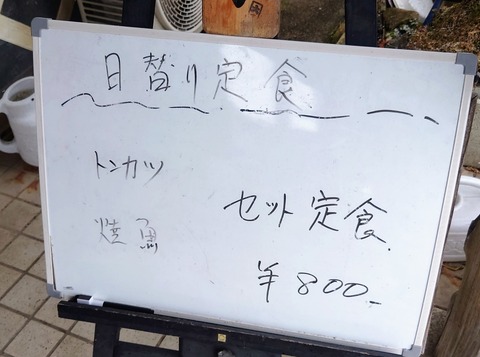 日替り定食
トンカツ
焼魚
セット定食
¥800-